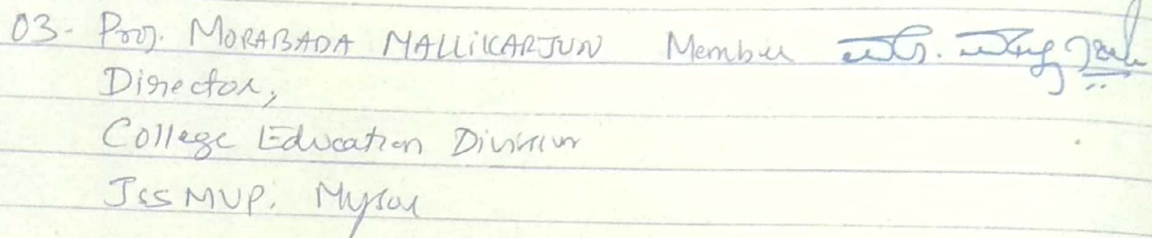 03- Prof. MORABADA MALLIKARJUN Member
Director,
College Education Division
JSS MVP. Mysore